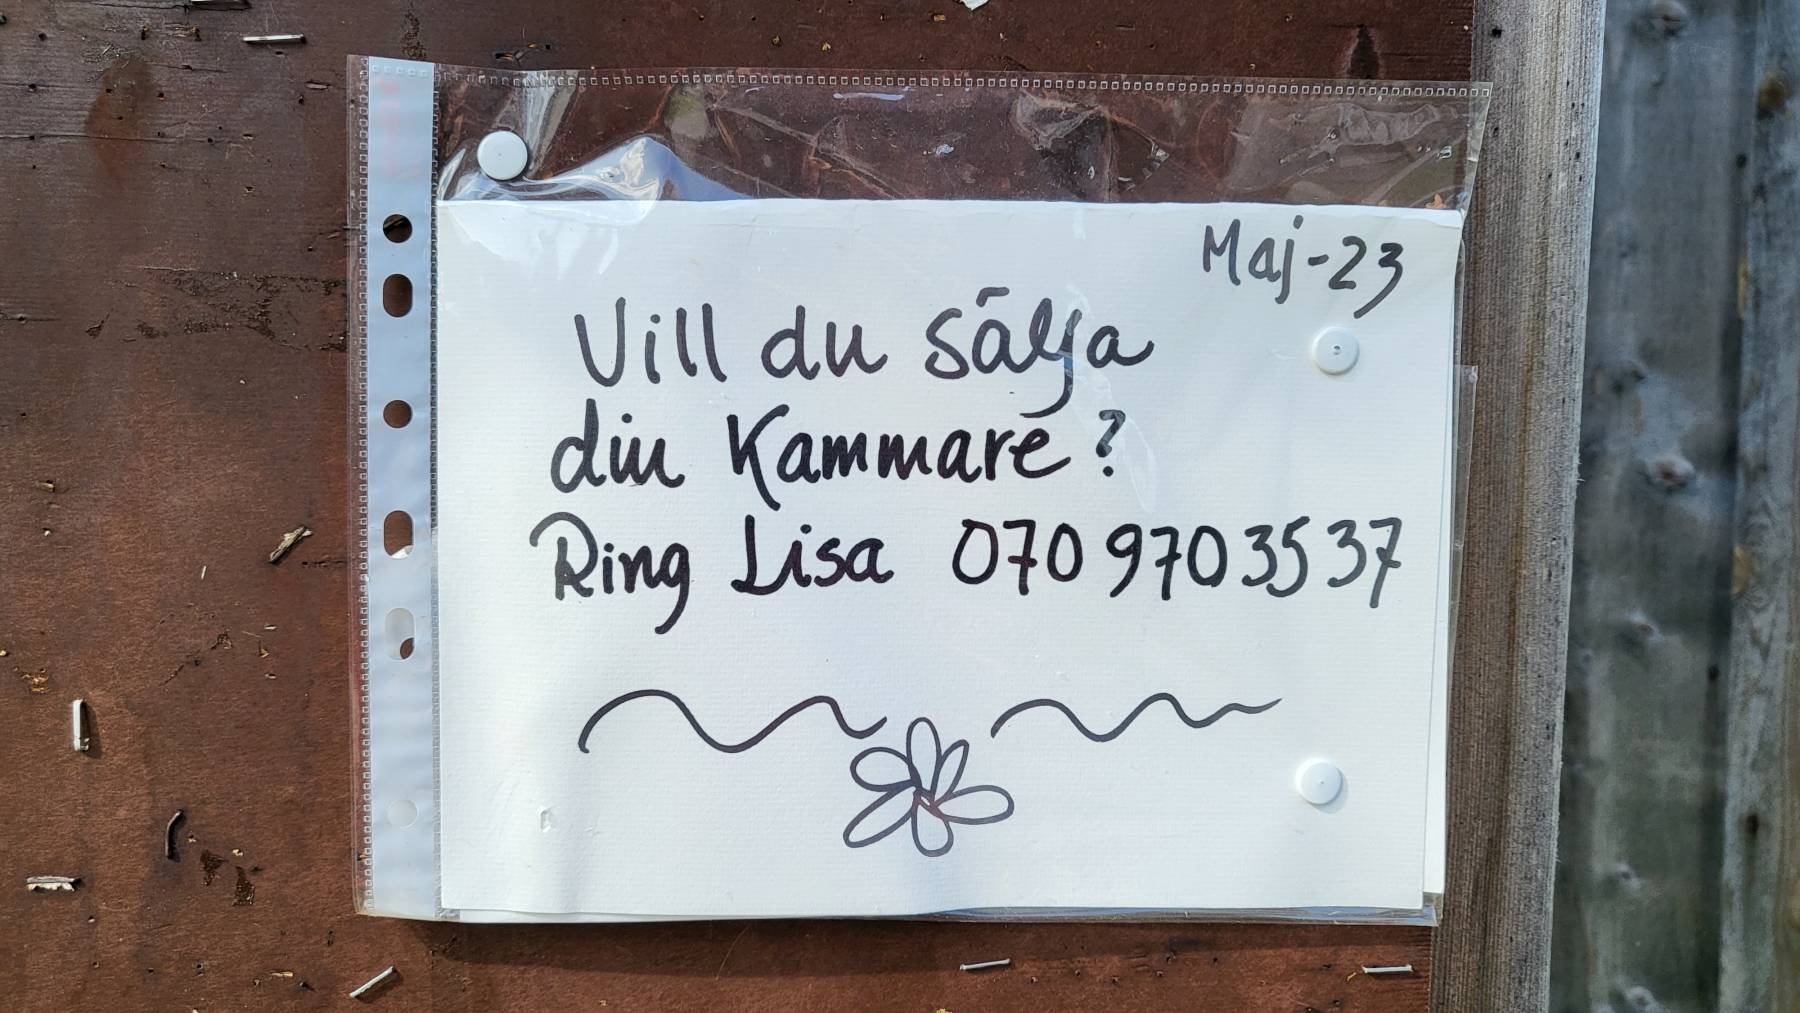 Maj-23
Vill du sälja
din Kammare?
Ring Lisa 070 970 35 37